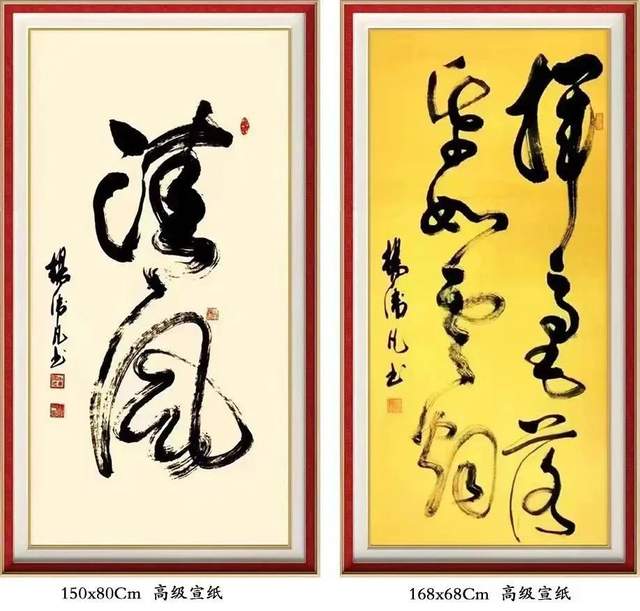 清风
楊凡书
揮毫落
纸如云烟
楊凡书
150x80Cm 高级宣纸
168x68Cm 高级宣纸